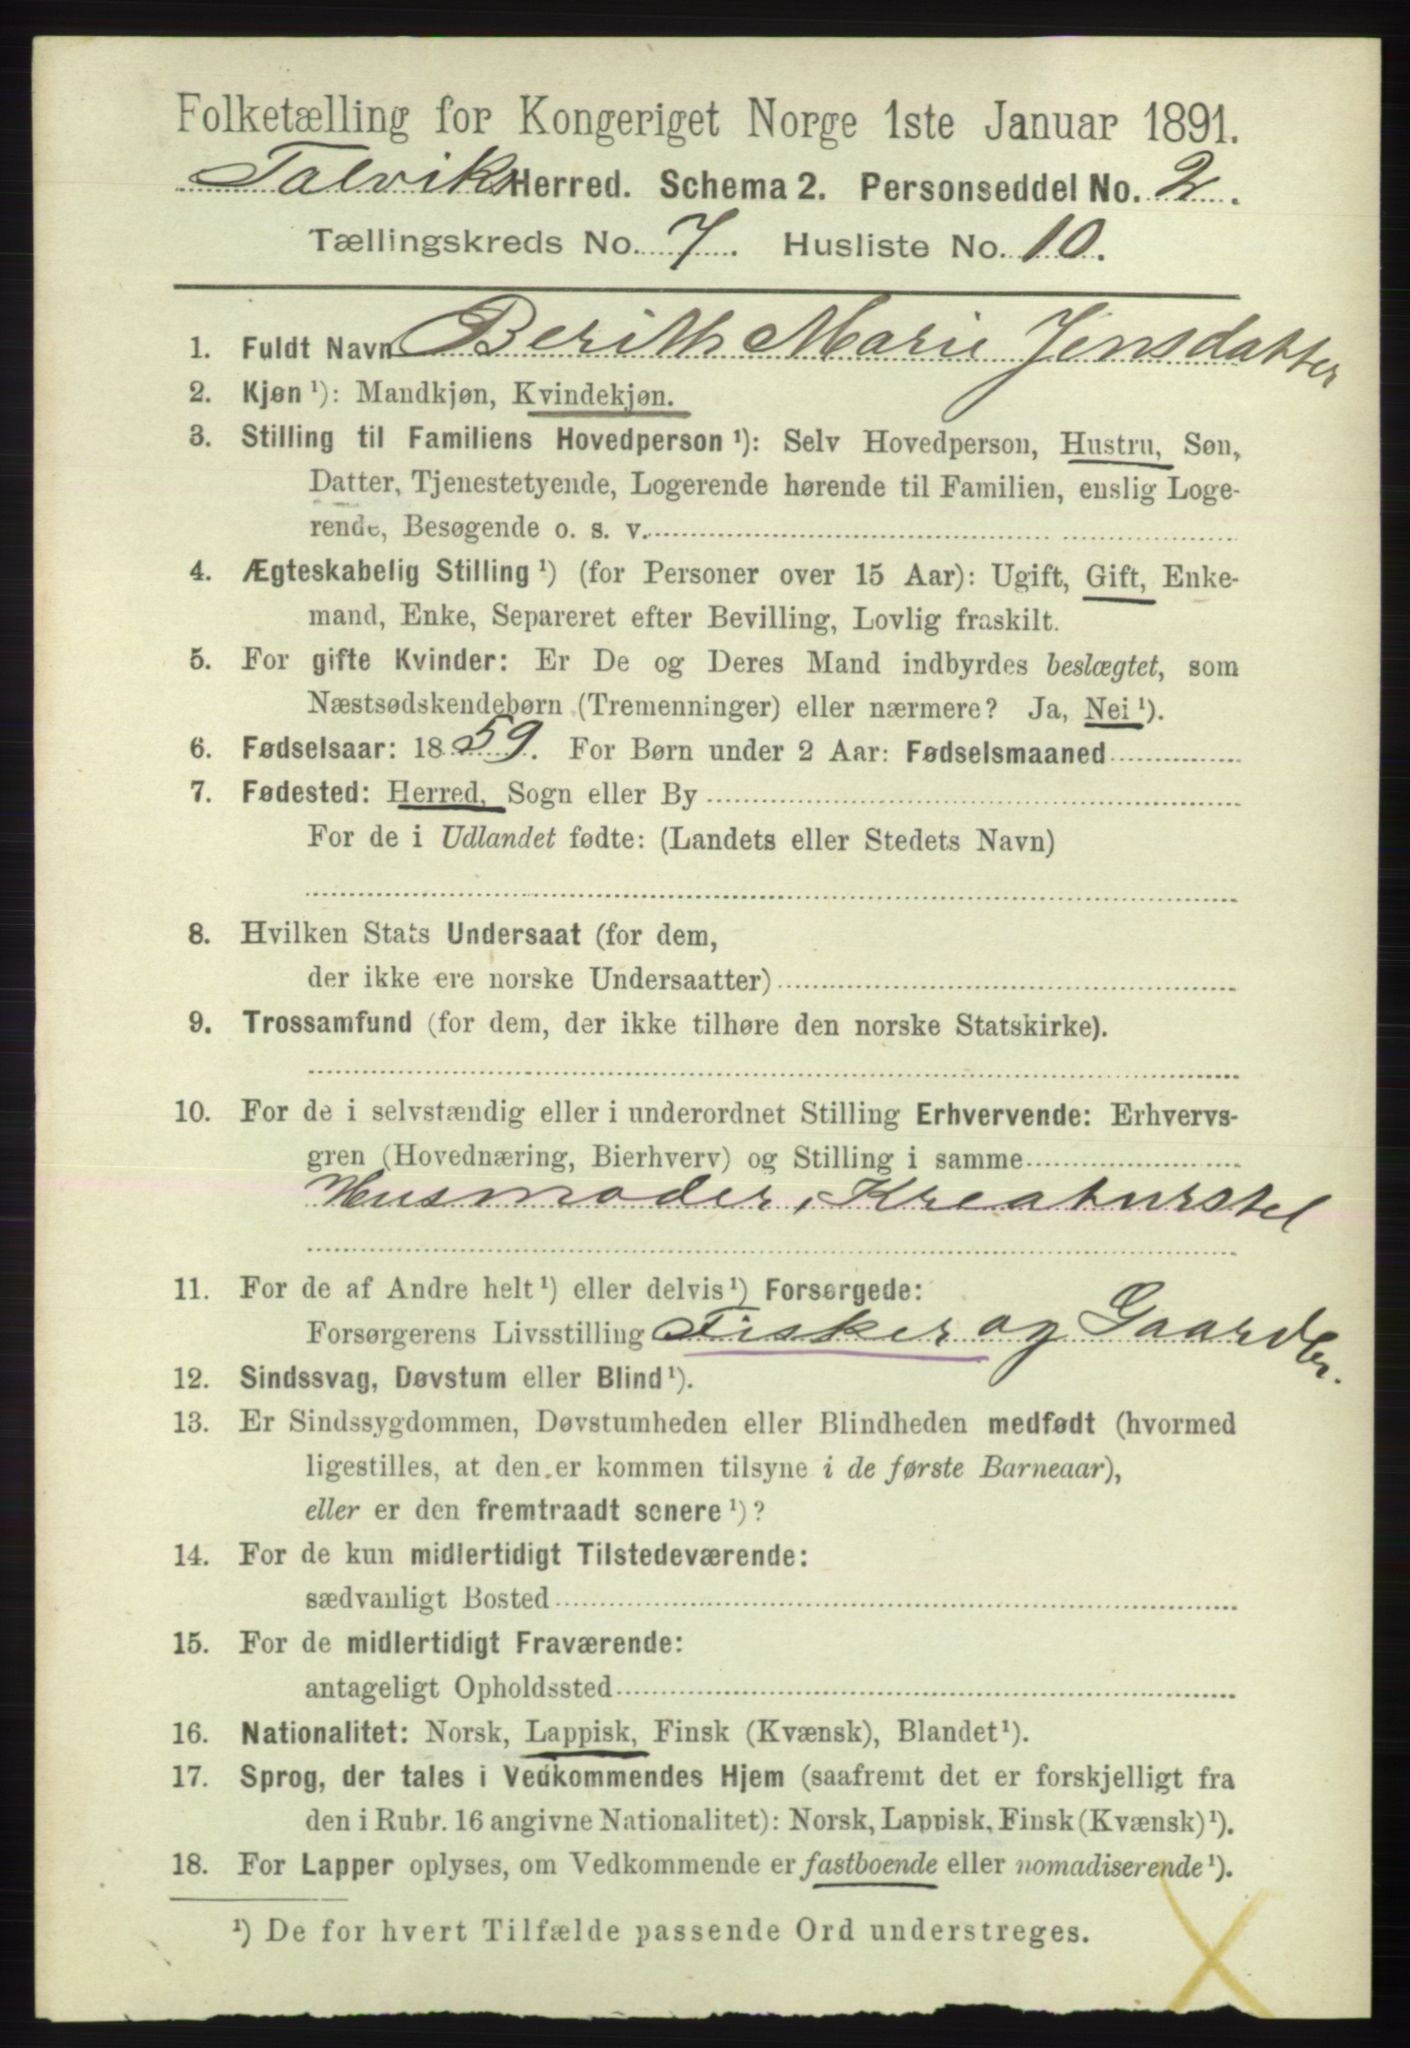 Folketælling for Kongeriget Norge 1ste Januar 1891.
Talviks Herred. Schema 2. Personseddel No. 2.
Tællingskreds No. 7. Husliste No. 10.
1. Fuldt Navn Berith Marie Jensdatter
2. Kjøn ¹): Mandkjøn, Kvindekjøn.
3. Stilling til Familiens Hovedperson ¹): Selv Hovedperson, Hustru, Søn,
Datter, Tjenestetyende, Logerende hørende til Familien, enslig Loge-
rende, Besøgende o. s. v.
4. Ægteskabelig Stilling ¹) (for Personer over 15 Aar): Ugift, Gift, Enke-
mand, Enke, Separeret efter Bevilling, Lovlig fraskilt.
5. For gifte Kvinder: Er De og Deres Mand indbyrdes beslægtet, som
Næstsødskendebørn (Tremenninger) eller nærmere? Ja, Nei ¹).
6. Fødselsaar: 1859. For Børn under 2 Aar: Fødselsmaaned
7. Fødested: Herred, Sogn eller By
For de i Udlandet fødte: (Landets eller Stedets Navn)
8. Hvilken Stats Undersaat (for dem,
der ikke ere norske Undersaatter)
9. Trossamfund (for dem, der ikke tilhøre den norske Statskirke).
10. For de i selvstændig eller i underordnet Stilling Erhvervende: Erhvervs-
gren (Hovednæring, Bierhverv) og Stilling i samme
Husmoder, Kreaturstel
11. For de af Andre helt ¹) eller delvis ¹) Forsørgede:
Forsørgerens Livsstilling Fisker og Gaardbr.
12. Sindssvag, Døvstum eller Blind ¹).
13. Er Sindssygdommen, Døvstumheden eller Blindheden medfødt (hvormed
ligestilles, at den er kommen tilsyne i de første Barneaar),
eller er den fremtraadt senere ¹)?
14. For de kun midlertidigt Tilstedeværende:
sædvanligt Bosted
15. For de midlertidigt Fraværende:
antageligt Opholdssted
16. Nationalitet: Norsk, Lappisk, Finsk (Kvænsk), Blandet ¹).
17. Sprog, der tales i Vedkommendes Hjem (saafremt det er forskjelligt fra
den i Rubr. 16 angivne Nationalitet): Norsk, Lappisk, Finsk (Kvænsk) ¹).
18. For Lapper oplyses, om Vedkommende er fastboende eller nomadiserende ¹).
¹) De for hvert Tilfælde passende Ord understreges.